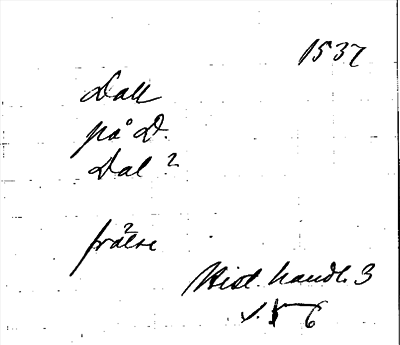 1537
Dall
på D.
Dal ²
frälse
Hist. handl. 3
s. 56